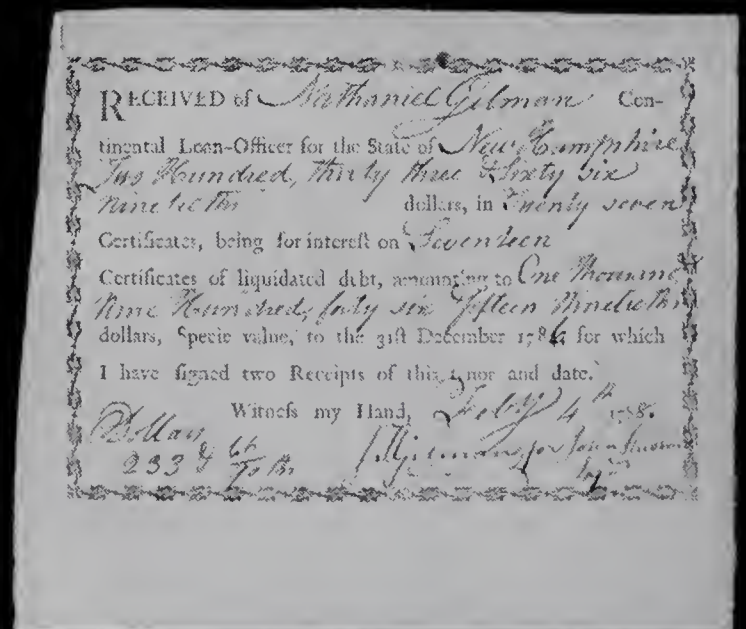 RECEIVED of Nathaniel Gilman Con-
tinental Loan-Officer for the State of New Hampshire
Two Hundred, thirty three & Sixty six
ninetieths dollars, in Twenty seven
Certificates, being for intereſt on Seventeen
Certificates of liquidated debt, amounting to One thousand
Nine Hundred, forty six fifteen Ninetieths
dollars, Specie value, to the 31ſt December 1786 for which
I have ſigned two Receipts of this tenor and date.
Witneſs my Hand, Feby 4th 1788.
Dollars
233 & 66/90ths J. Gilman for John